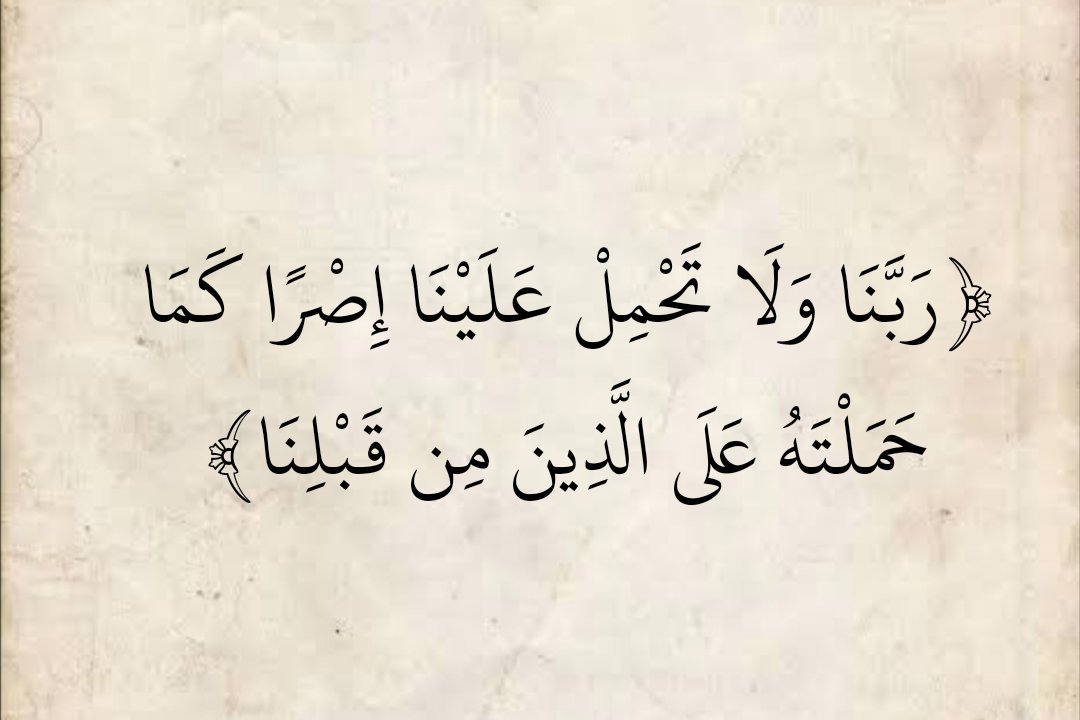 ﴿رَبَّنَا وَلَا تَحْمِلْ عَلَيْنَا إِصْرًا كَمَا
حَمَلْتَهُ عَلَى الَّذِينَ مِن قَبْلِنَا﴾